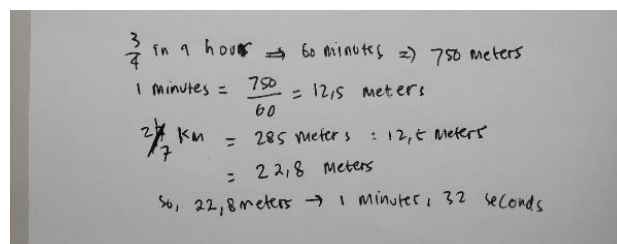 3/4 in 1 hour ⇒ 60 minutes ⇒ 750 meters
1 minutes = 750/60 = 12,5 meters
2/7 Km = 285 meters : 12,5 meters
= 22,8 meters
So, 22,8 meters → 1 minutes, 32 seconds